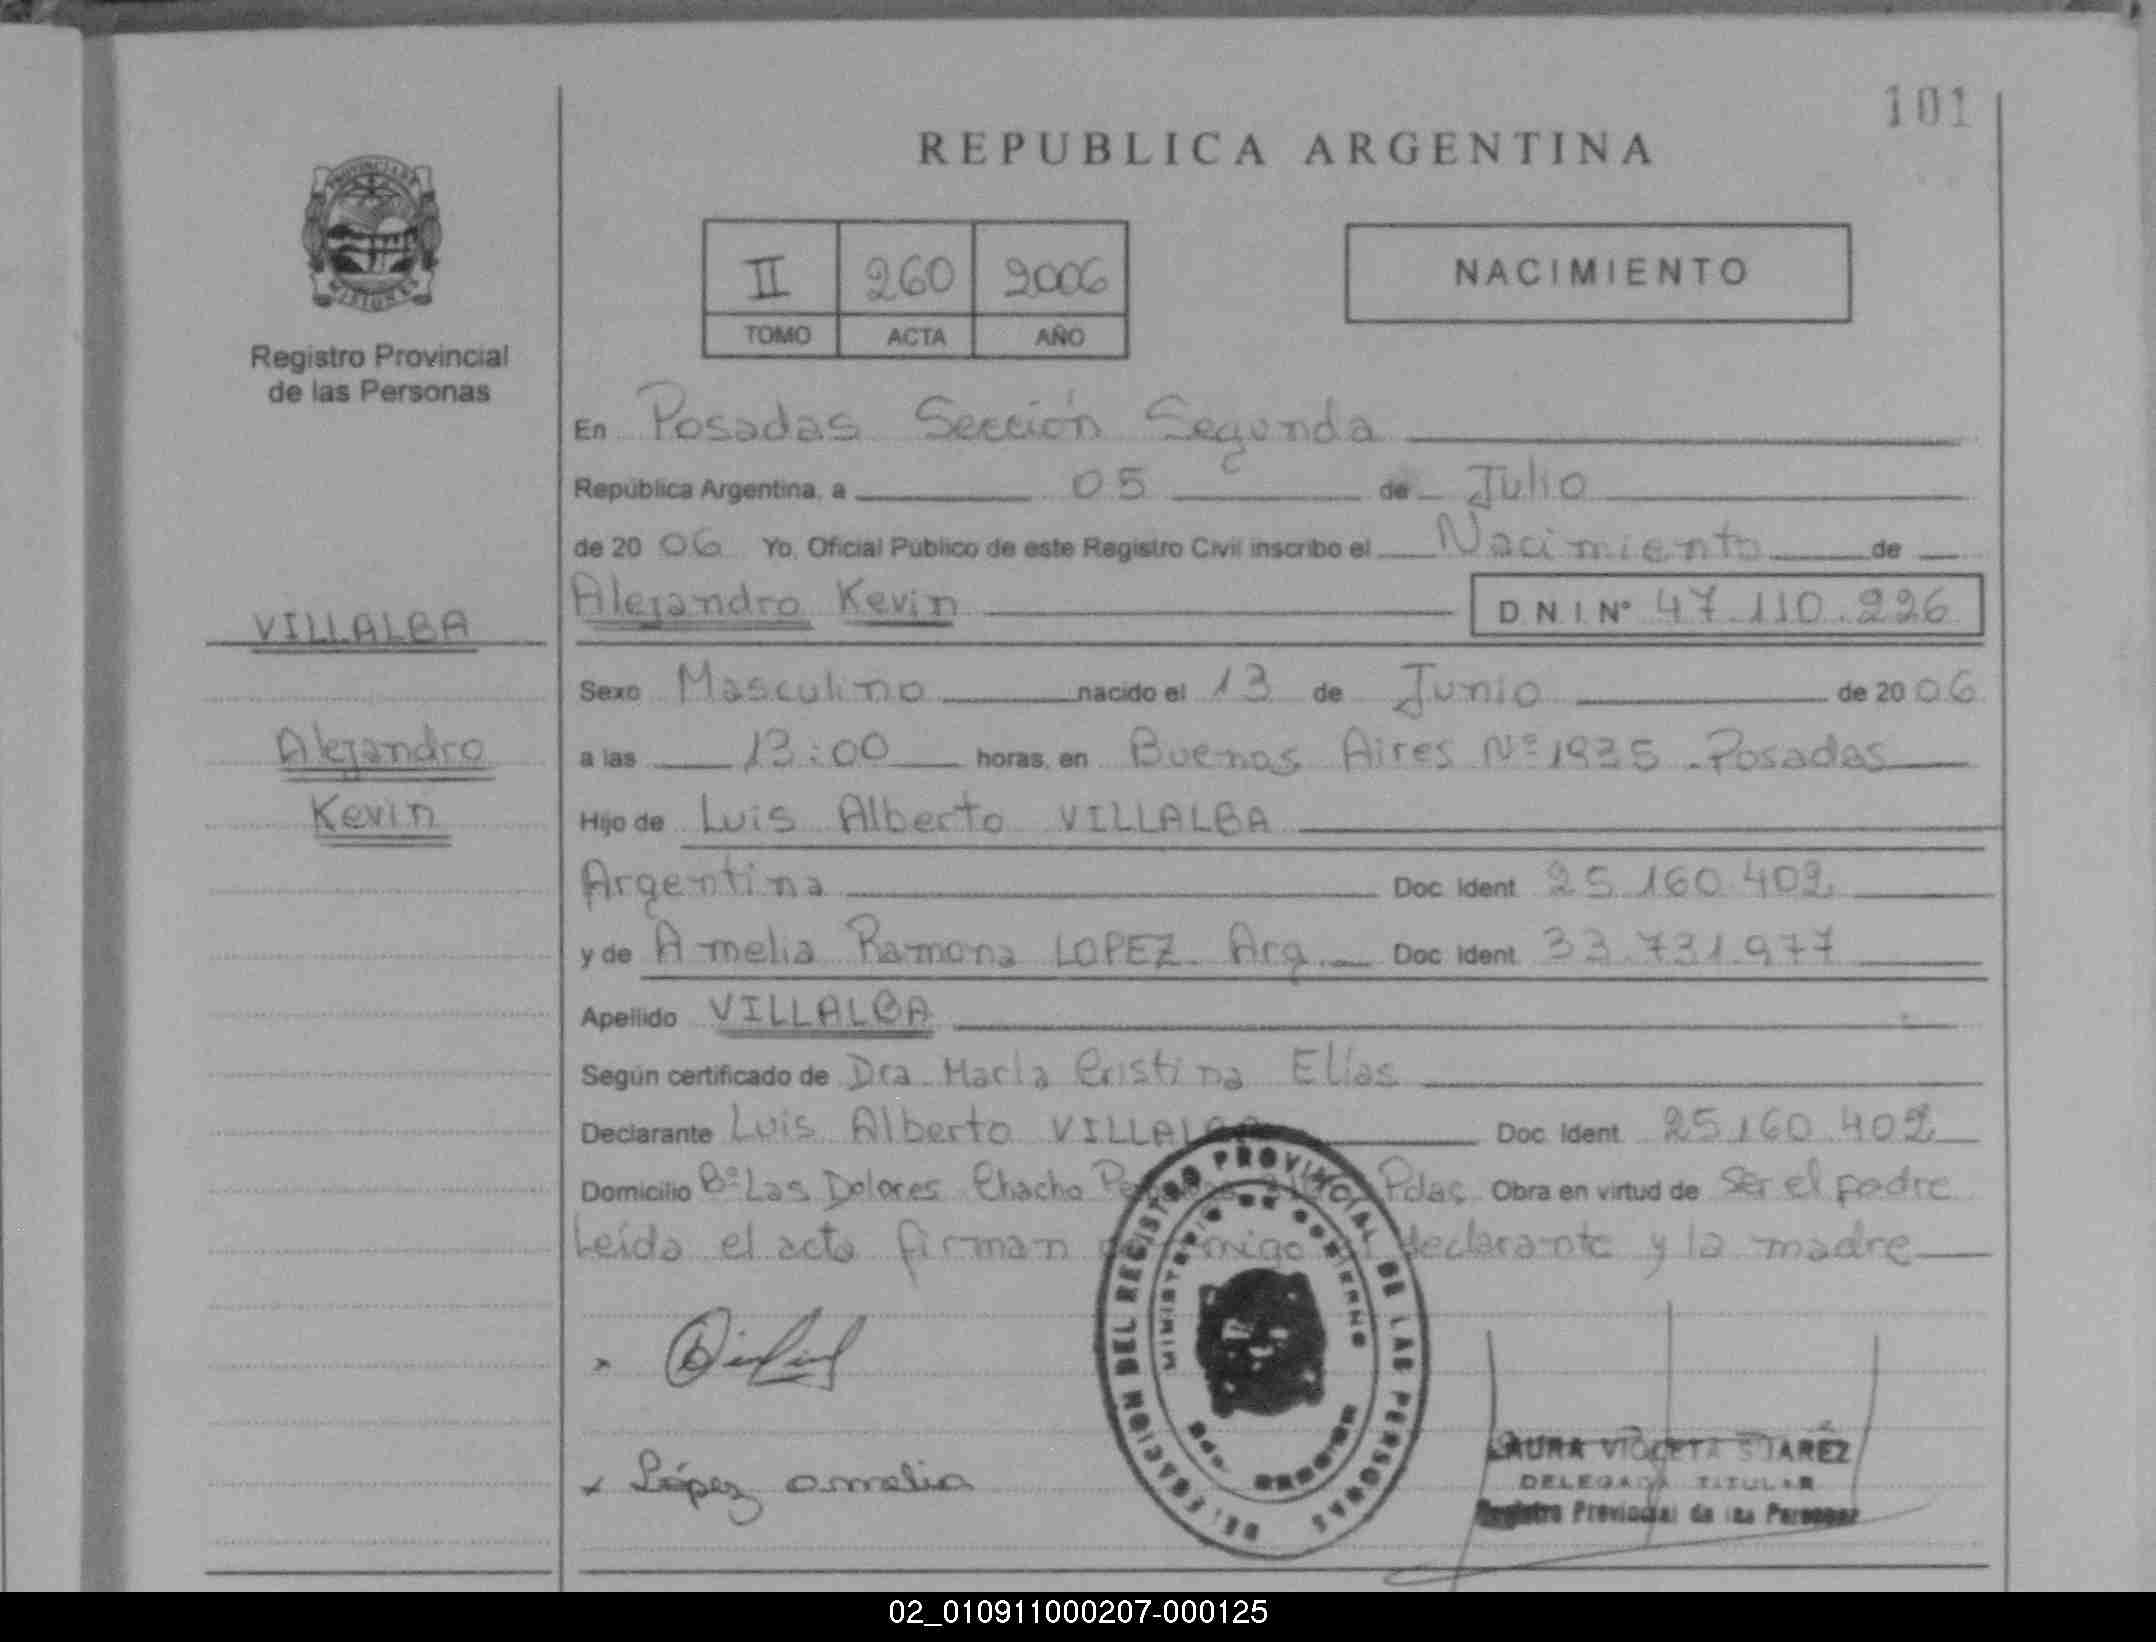 101
REPUBLICA ARGENTINA
PROVINCIA DE
MISIONES
Registro Provincial
de las Personas
II 260 2006
TOMO ACTA AÑO
NACIMIENTO
En Posadas Sección Segunda
República Argentina, a 05 de Julio
de 2006 Yo, Oficial Público de este Registro Civil inscribo el Nacimiento de
Alejandro Kevin D.N.I. Nº 47.110.226
VILLALBA
Alejandro
Kevin
Sexo Masculino nacido el 13 de Junio de 2006
a las 13:00 horas, en Buenos Aires Nº 1935 - Posadas
Hijo de Luis Alberto VILLALBA
Argentina Doc. Ident. 25.160.402
y de Amelia Ramona LOPEZ Arg. Doc. Ident. 33.731.977
Apellido VILLALBA
Según certificado de Dra María Cristina Elías
Declarante Luis Alberto VILLALBA Doc. Ident. 25.160.402
Domicilio Bº Las Dolores Chacho Pdas. Obra en virtud de ser el padre
Leída el acta firman declarante y la madre
López Amelia
DELEGACION DEL REGISTRO PROVINCIAL DE LAS PERSONAS
MINISTERIO DE GOBIERNO
LAURA VIOLETA SUAREZ
DELEGADA TITULAR
Registro Provincial de las Personas
02_010911000207-000125